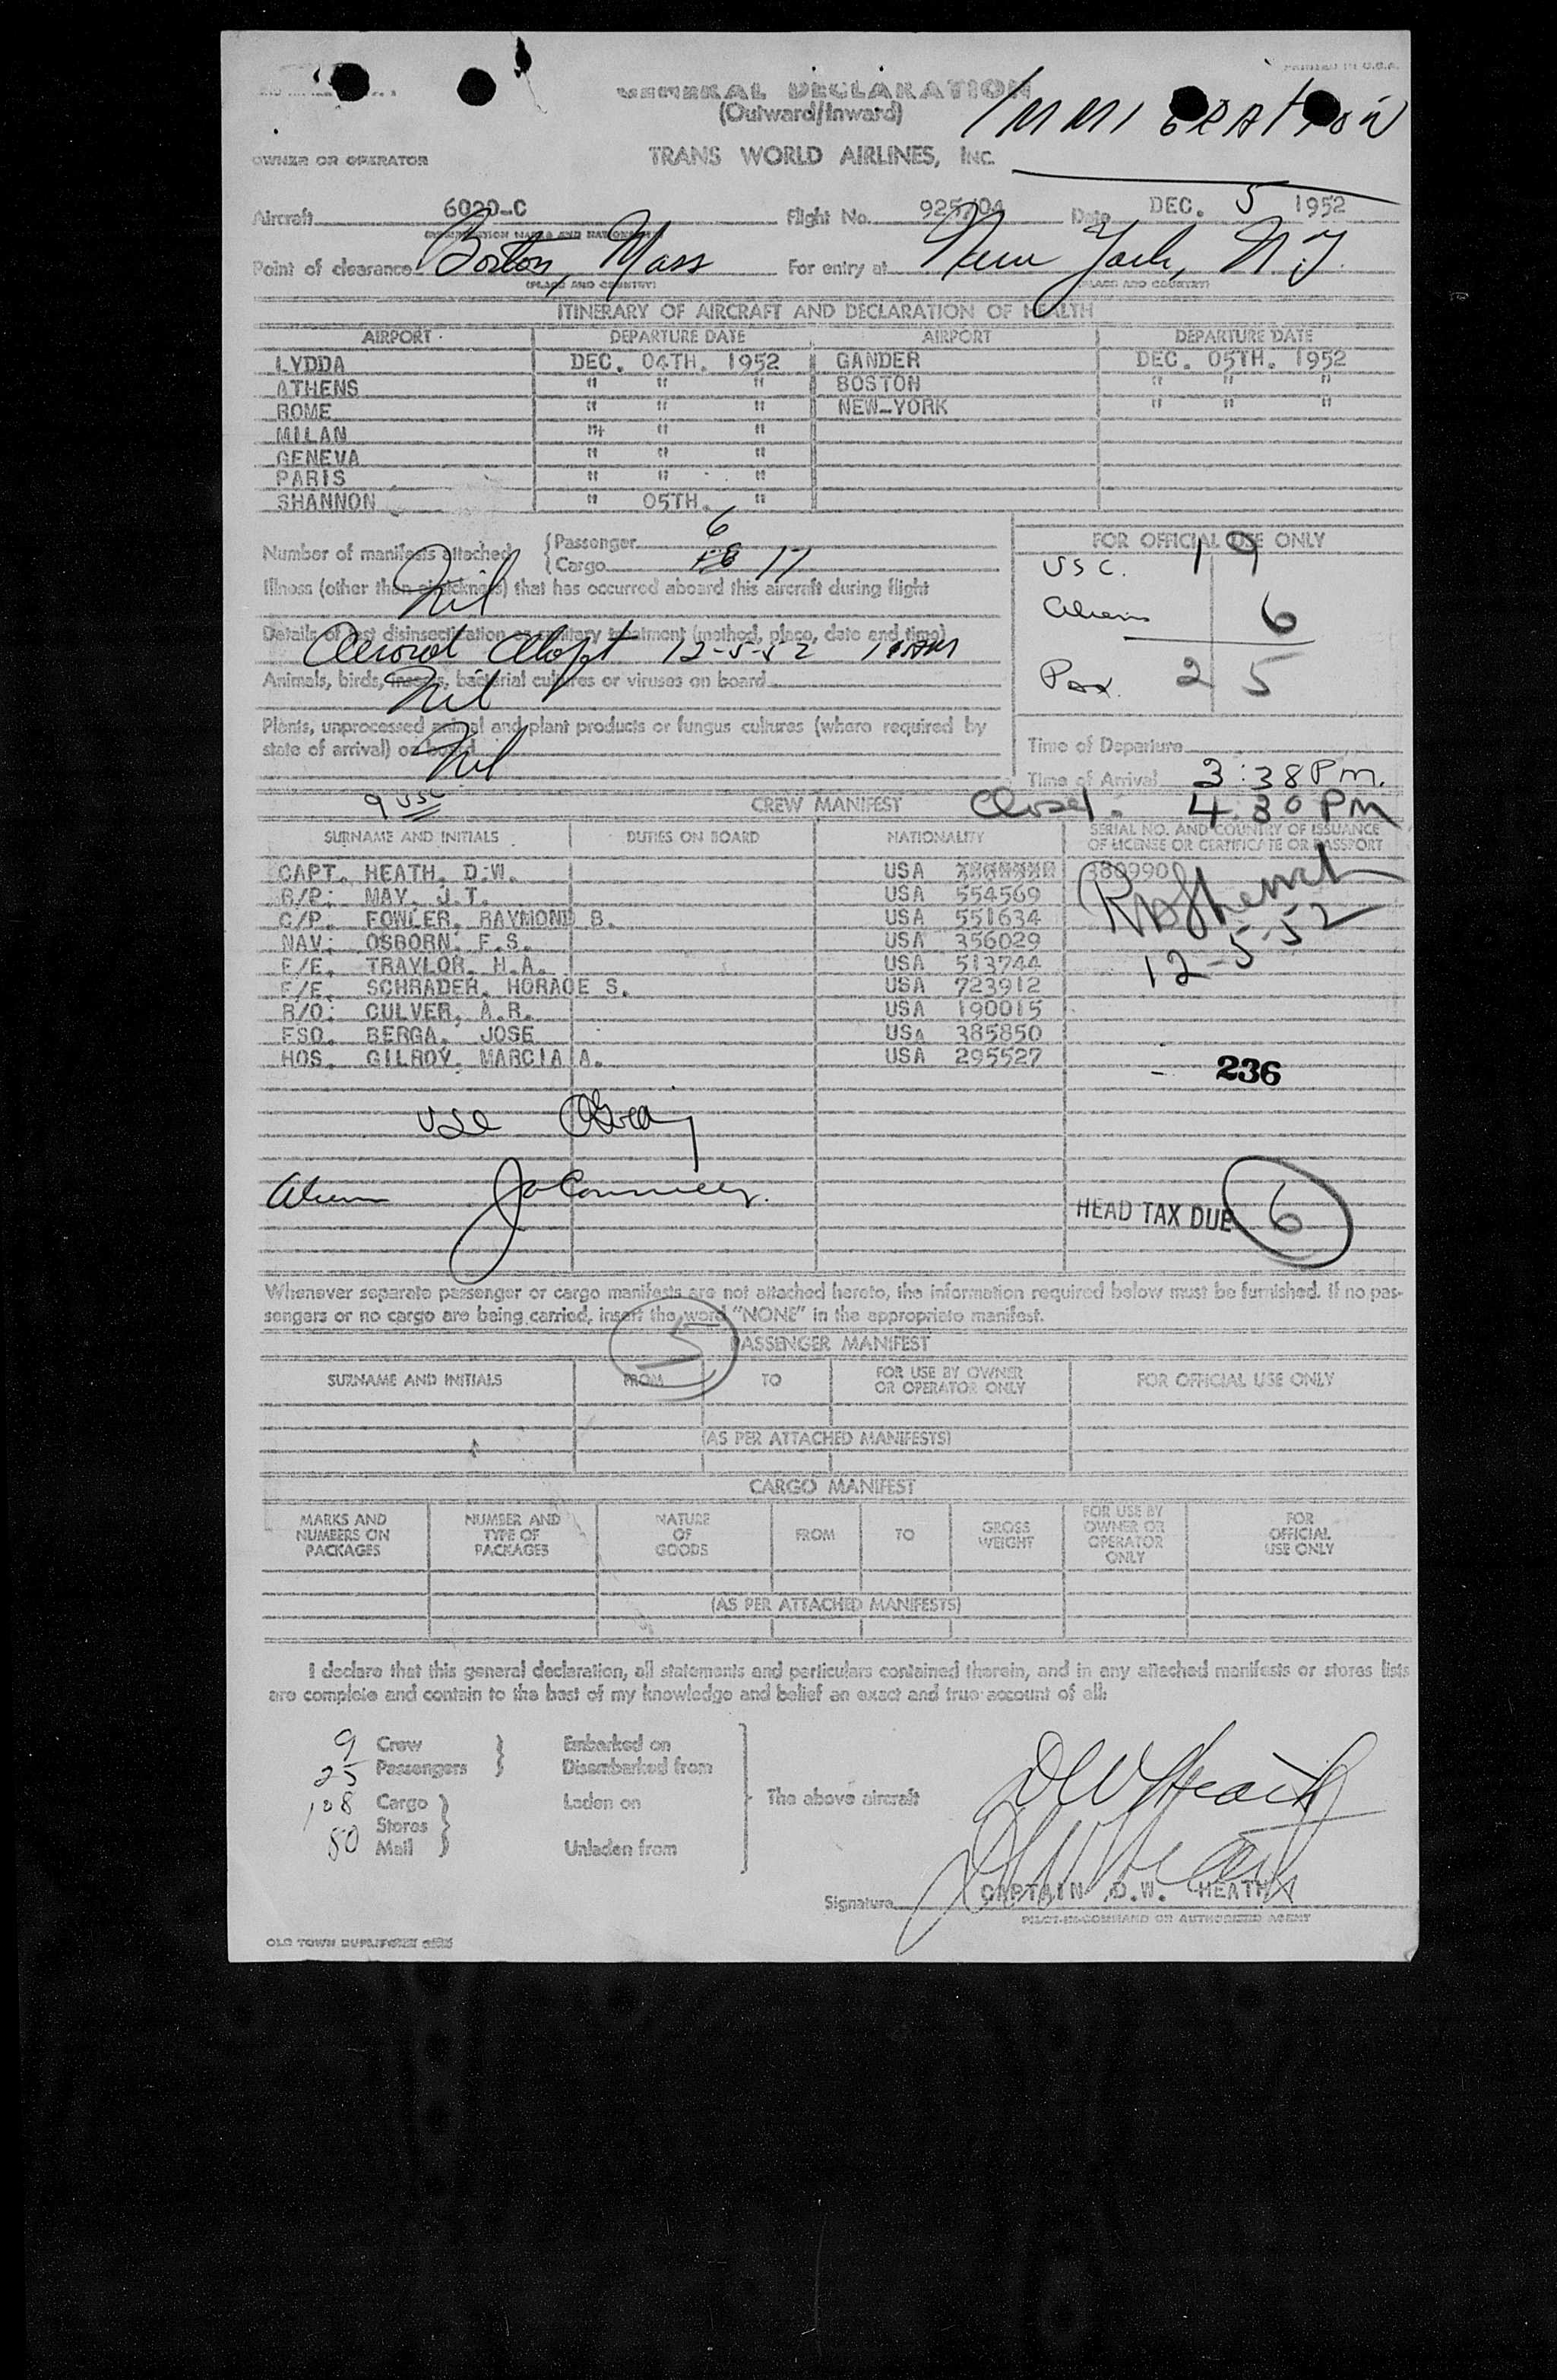 PRINTED IN U.S.A.
GENERAL DECLARATION
(Outward/Inward)
IMMIGRATION
OWNER OR OPERATOR
TRANS WORLD AIRLINES, INC.
Aircraft 6020-C Flight No. 925/04 Date DEC. 5 1952
Point of clearance Boston, Mass For entry at New York, N.Y.
(PLACE AND COUNTRY) (PLACE AND COUNTRY)
ITINERARY OF AIRCRAFT AND DECLARATION OF HEALTH
AIRPORT DEPARTURE DATE AIRPORT DEPARTURE DATE
LYDDA DEC. 04TH. 1952 GANDER DEC. 05TH. 1952
ATHENS " " " BOSTON " " "
ROME " " " NEW-YORK " " "
MILAN " " "
GENEVA " " "
PARIS " " "
SHANNON " 05TH. "
Number of manifests attached { Passenger 6
Cargo 17
FOR OFFICIAL USE ONLY
USC. 19
Aliens 6
Pax. 25
Illness (other than airsickness) that has occurred aboard this aircraft during flight
Nil
Details of last disinsectization or sanitary treatment (method, place, date and time)
Aerosol 12-5-52
Animals, birds, insects, bacterial cultures or viruses on board
Nil
Plants, unprocessed animal and plant products or fungus cultures (where required by
state of arrival) on board
Nil
Time of Departure
Time of Arrival 3:38 Pm.
9 USC
CREW MANIFEST
Closed. 4:30 PM
SURNAME AND INITIALS DUTIES ON BOARD NATIONALITY SERIAL NO. AND COUNTRY OF ISSUANCE
OF LICENSE OR CERTIFICATE OR PASSPORT
CAPT. HEATH, D.W. USA 380990
B/P: MAY, J.T. USA 554569
C/P. FOWLER, RAYMOND B. USA 551634
NAV: OSBORN, F.S. USA 356029
F/E. TRAYLOR, H.A. USA 513744
F/E. SCHRADER, HORACE S. USA 723912
R/O: CULVER, A.R. USA 190015
FSO. BERGA, JOSE USA 385850
HOS. GILROY, MARCIA A. USA 295527
12-5-52
236
USC
Aliens
HEAD TAX DUE 6
Whenever separate passenger or cargo manifests are not attached hereto, the information required below must be furnished. If no pas-
sengers or no cargo are being carried, insert the word "NONE" in the appropriate manifest.
5
PASSENGER MANIFEST
SURNAME AND INITIALS FROM TO FOR USE BY OWNER
OR OPERATOR ONLY FOR OFFICIAL USE ONLY
(AS PER ATTACHED MANIFESTS)
CARGO MANIFEST
MARKS AND
NUMBERS ON
PACKAGES
NUMBER AND
TYPE OF
PACKAGES
NATURE
OF
GOODS
FROM
TO
GROSS
WEIGHT
FOR USE BY
OWNER OR
OPERATOR
ONLY
FOR
OFFICIAL
USE ONLY
(AS PER ATTACHED MANIFESTS)
I declare that this general declaration, all statements and particulars contained therein, and in any attached manifests or stores lists
are complete and contain to the best of my knowledge and belief an exact and true account of all:
9 Crew } Embarked on
25 Passengers Disembarked from
108 Cargo } Laden on
The above aircraft
Stores
80 Mail Unladen from
DW Heath
Signature CAPTAIN D.W. HEATH
PILOT-IN-COMMAND OR AUTHORIZED AGENT